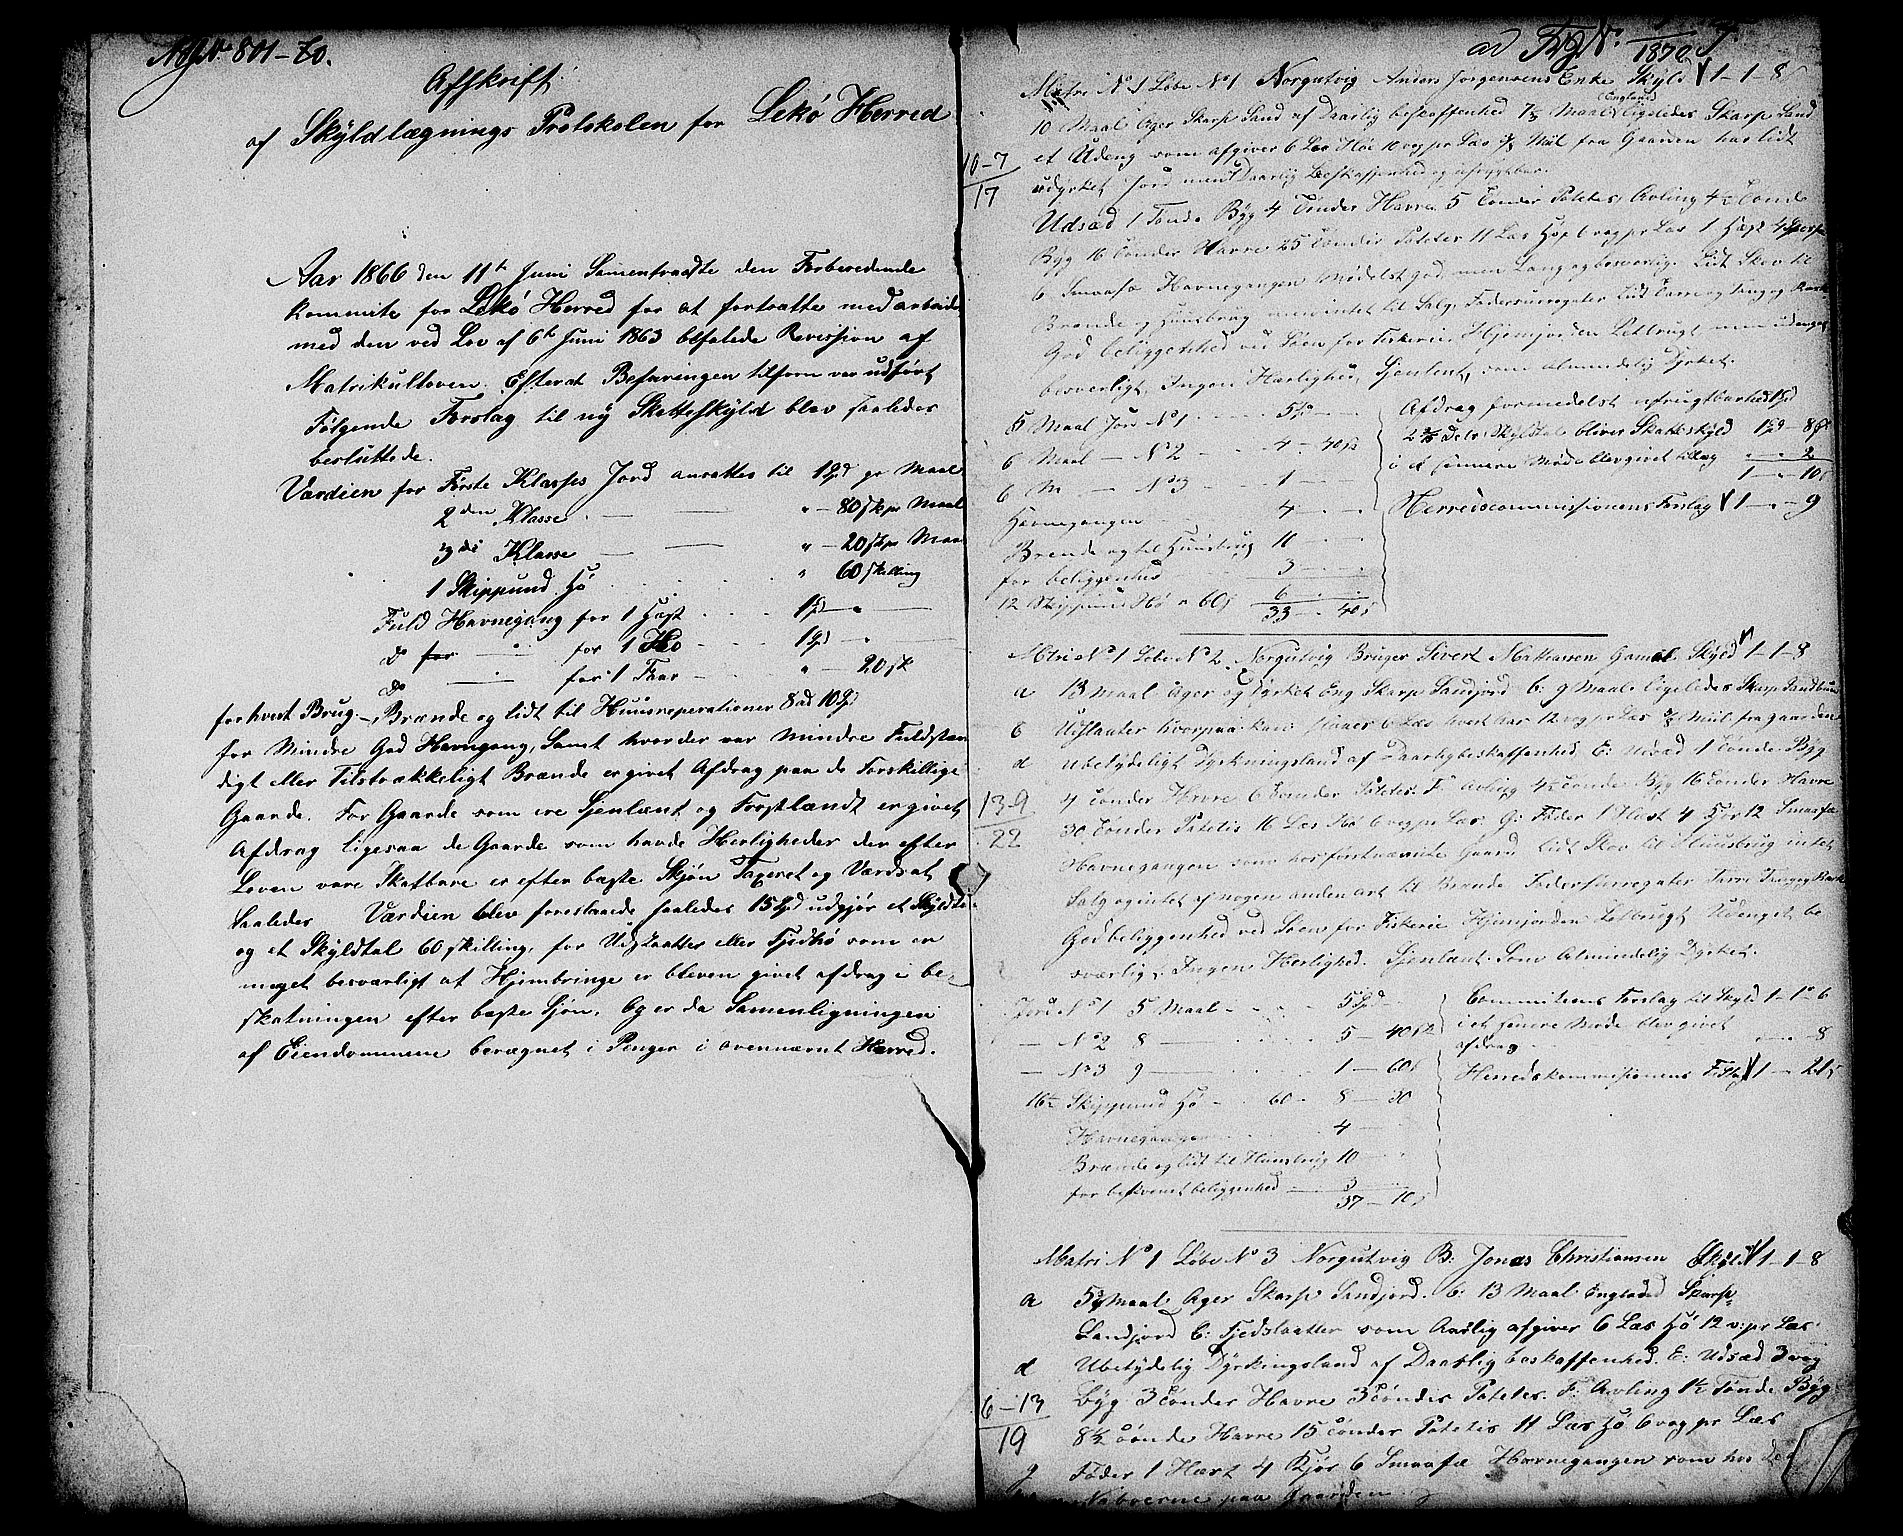 801-70.
Afskrift
af Skyldlægnings Protokolen for Lekø Herred
Aar 1866 den 11te Juni Samentraadte den Forberedende
kommite for Lekø Herred for at fortsatte med arbeidet
med den ved Lov af 6te Juni 1863 befalede Revission af
Matrikulloven. Efterat Befaringen tilforn var udført
Følgende Forslag til ny Skatteskyld blev saaledes
besluttede.
Værdien for Første Klasses Jord ansattes til 1 Spd pr Maal
2den Klasse — — " — 80 sk pr Maal
3die Klasse — — " — 20 sk pr Maal
1 Skippund Hø " 60 skilling
Fuld Havnegang for 1 Hæst 1 Spd " —
do for — " for 1 Ko 1 Spd — "
do — " for 1 Faar " — 20 sk
for hvert Brug — Brænde og lidt til Huusreperationer 8 ad 10 Spd
for Mindre God Havngang, Samt hvor der var Mindre Fuldstæn
digt eller Tilstrækkeligt Brænde er givet Afdrag paa de Forskillige
Gaarde. For Gaarde som ere Sjenlænt og Frostlændt er givet
Afdrag ligesaa de Gaarde som havde Herligheder der efter
Loven vare Skatbare er efter bæste Skjøn Taxeret og Værdsat
Saaledes Værdien blev foreslaaede saaledes 15 Spd udgjør et Skyldda
og et Skyldtal 60 skilling, for Udslaatter eller Fjedhø som er
meget besværligt at Hjembringe er bleven givet afdrag i be-
skatningen efter bæste Sjøn. Og er da Samenligningen
af Eiendommene beregnet i Penger i ovennævnt Herred.
1872
Matri No 1 Løbe No 1 Norgutvig Anders Jørgensens Enke Skyld 1-1-8
England
10 Maal Ager Skarp Sand af Daarlig beskaffenhed 7½ Maal ligeledes Skarp Sand
et Udeng som afgiver 6 Læs Høe 10 vog pr Læs ¾ Miil fra Gaarden har lidt
10-7
17
udyrket Jord men Daarlig Beskaffenhed og ufrugtbar.
Udsæd 1 Tønde Byg 4 Tønder Havre 5 Tønder Potetes, Avling 4½ Tønde
Byg 16 Tønder Havre 25 Tønder Poteter 11 Læs Høe 6 vog pr Læs 1 Hæst 4
6 Smaafæ Havnegangen Mødelst god men Lang og besværlig. Lidt Skov til
Brænde og Huusbrug men intet til Salg. Fodersurregater Lidt Tarre og Tang og
God beliggenhed ved Søen for Fiskerie, Hjemjorden Letbrugt men udenget
besverligt, Ingen Hærlighed, Sjenlent, som almindelig Dyrket.
5 Maal Jord No 1 5
6 Maal — No 2 4 - 40 sk
6 M — No 3 1 —
Havnegangen 4 — "
Brænde og til Huusbrug 10
for beliggenhed 3
12 Skippund Hø a 60 s 6
33 - 40 s
Afdrag formedelst ufrugtbarhed 1 Spd
Skyldtal bliver Skatteskyld 1 — 8
i et sennere Møde blev givet tillæg 2
1 — 10
Herredscommissionens Forslag 1 — " — 9
Mtri No 1 Løbe No 2 Norgutvig Bruger Sivert Mathiassen Gamel Skyld 1-1-8
a 13 Maal Ager og Dyrket Eng Skarp Sandjord b: 9 Maal ligeledes Skarp Sandbund
c Udslaater hvorpaa kan slaaes 6 Læs hvert har 12 vog pr Læs ¾ Miil fra gaarden
d Ubetydeligt Dyrkningsland af Daarlig beskaffenhed. E: Udsæd 1 Tønde Byg
13-9
22
4 Tønder Havre 6 Tønder Potetes. F: Avling 4½ Tønde Byg 16 Tønder Havre
30 Tønder Potetes 16 Læs Hø 6 vog pr Læs. G: Føder 1 Hæst 4 Kjør 12 Smaafæ
Havnegangen som hos førstnævnte Gaard Lidt Skov til Huusbrug intet
Salg og intet af nogen anden art til Brænde Fodersurregater Tarre Tang og
God beliggenhed ved Søen for Fiskerie Hjemjorden Letbrugt Udenget be
sværlig, Ingen Herlighed. Sjenlænt Som Almindelig Dyrket.
Jord No 1 5 Maal 5 Spd —
— No 2 8 — 5 — 40 sk
— No 3 9 — 1 — 60 s
16½ Skippund Hø 60 8 — 30
Havnegangen 4 —
Brænde og lidt til Huusbrug 10 —
for beqvemet beliggenhed 3
37 — 10 s
Commitens Forslag til Skyld 1-1-6
i et senere Møde blev givet
afdrag — 8
Herredskommisionens Forslag 1 — " — 21 s
Matri No 1 Løbe No 3 Norgutvig B: Jonas Christiansen Skyld 1-1-8
a 5¾ Maal Ager Skarp Sandjord. b: 13 Maal Engladed Skarp
Sandjord C: Fjedslaatter som Aarlig afgiver 6 Læs Hø 12 v: pr Læs
d Ubetydelig Dyrkingsland af Daarlig beskaffenhed. E: Udsæd 3 vog
6-13
19
Byg 3 Tønder Havre 3 Tønder Potetes. F: Avling 1½ Tønde Byg
8½ Tønde Havre 15 Tønder Potetis 11 Læs Hø 6 vog pr Læs
g Føder 1 Hæst 4 Kjør 6 Smaafæ Havnegangen som hos de
Naboerne paa Gaarden